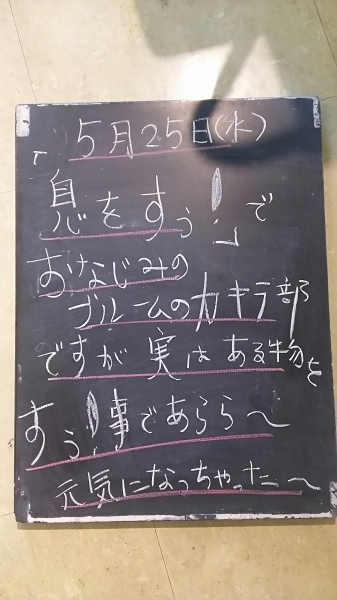 5月25日(水)
「息をすぅ!」で
おなじみの
ブルームのカキラ部
ですが実はある物を
すぅ!事であらら〜
元気になっちゃった〜